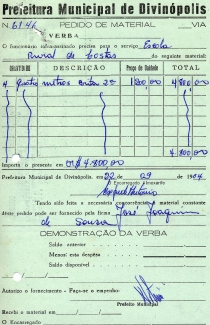 Prefeitura Municipal de Divinópolis
N. 6146 PEDIDO DE MATERIAL VIA
VERBA
O funcionário sub-assinado precisa para o serviço Escola
Rural de Costas do seguinte material:
QUANTIDADE DESCRIÇÃO Preço da Unidade TOTAL
4 quatro metros 1.200,00 4.800,00
4.800,00
Importa o presente em CR$ 4.800,00
Prefeitura Municipal de Divinópolis, em 22 09 1984
O Encarregado Almoxarife
Tendo sido feita a necessária concorrência o material constante
dêste pedido pode ser fornecido pela firma José Joaquim
de Sousa
DEMONSTRAÇÃO DA VERBA
Saldo anterior
Menos: esta despêsa
Saldo disponível
Autorizo o fornecimento - Faça-se o empenho
Prefeito Municipal
Recebi o material em
O Encarregado